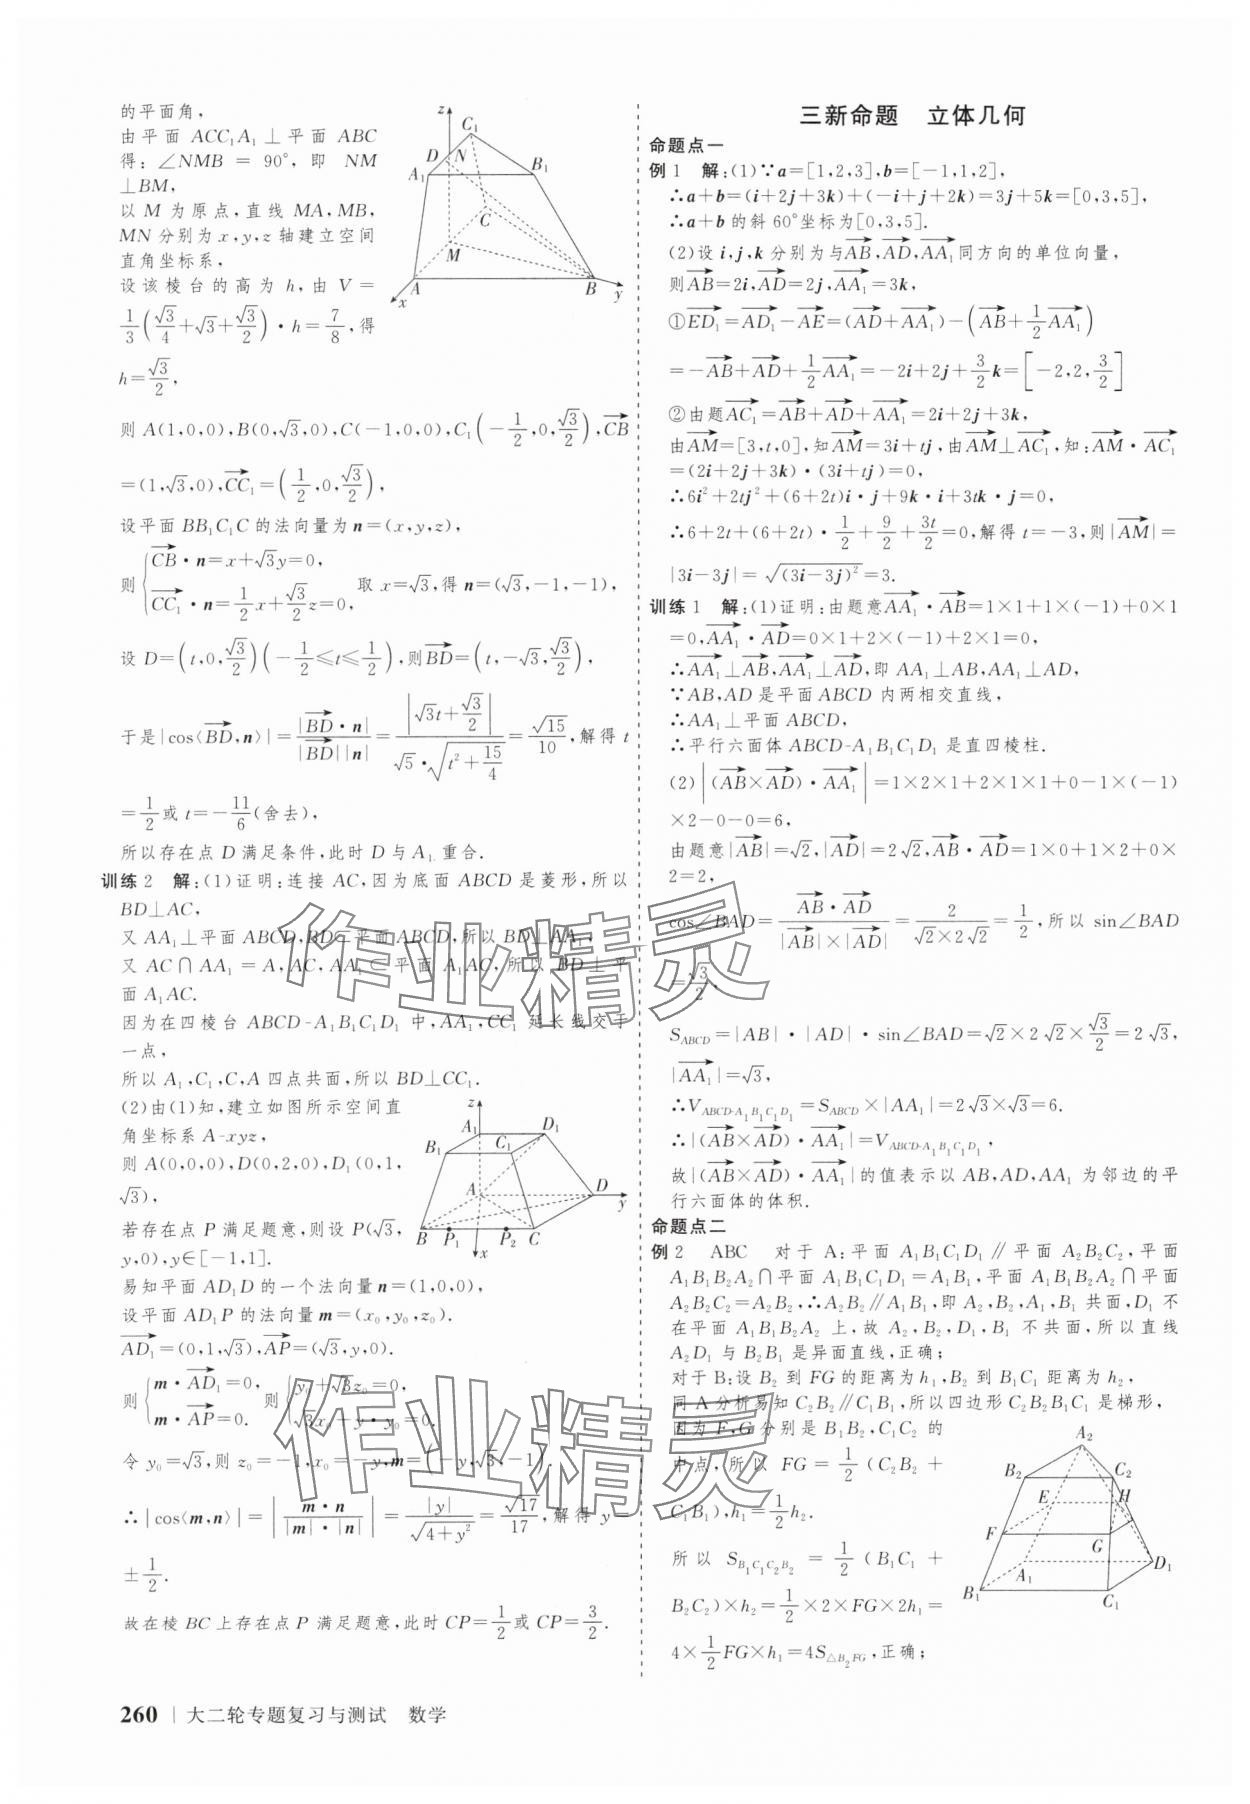 的平面角，
由平面 ACC₁A₁⊥平面 ABC
得：∠NMB = 90°，即 NM
⊥BM，
以 M 为原点，直线 MA，MB，
MN 分别为 x，y，z 轴建立空间
直角坐标系，
设该棱台的高为 h，由 V =
1/3(√3/4+√3+√3/2)·h=7/8，得
h=√3/2，
则 A(1,0,0)，B(0,√3,0)，C(-1,0,0)，C₁(-1/2,0,√3/2)，CB→
=(1,√3,0)，CC₁→=(1/2,0,√3/2)，
设平面 BB₁C₁C 的法向量为 n=(x,y,z)，
则{CB→·n=x+√3y=0，CC₁→·n=1/2x+√3/2z=0，取 x=√3，得 n=(√3,-1,-1)，
设 D=(t,0,√3/2)(-1/2≤t≤1/2)，则BD→=(t,-√3,√3/2)，
于是|cos⟨BD→,n⟩|=|BD→·n|/(|BD→||n|)=|√3t+√3/2|/(√5·√(t²+15/4))=√15/10，解得 t
=1/2或 t=-11/6(舍去)，
所以存在点 D 满足条件，此时 D 与 A₁ 重合.
训练2 解：(1)证明：连接 AC，因为底面 ABCD 是菱形，所以
BD⊥AC，
又 AA₁⊥平面 ABCD，BD⊂平面 ABCD，所以 BD⊥AA₁，
又 AC∩AA₁=A，AC，AA₁⊂平面 A₁AC，所以 BD⊥平
面 A₁AC.
因为在四棱台 ABCD-A₁B₁C₁D₁ 中，AA₁，CC₁ 延长线交于
一点，
所以 A₁，C₁，C，A 四点共面，所以 BD⊥CC₁.
(2)由(1)知，建立如图所示空间直
角坐标系 A-xyz，
则 A(0,0,0)，D(0,2,0)，D₁(0,1,
√3)，
若存在点 P 满足题意，则设 P(√3,
y,0)，y∈[-1,1].
易知平面 AD₁D 的一个法向量 n=(1,0,0)，
设平面 AD₁P 的法向量 m=(x₀,y₀,z₀).
AD₁→=(0,1,√3)，AP→=(√3,y,0).
则{m·AD₁→=0，m·AP→=0.则{y₀+√3z₀=0，√3x₀+y·y₀=0.
令 y₀=√3，则 z₀=-1，x₀=-y，m=(-y,√3,-1).
∴|cos⟨m,n⟩|=|m·n/(|m|·|n|)|=|y|/√(4+y²)=√17/17，解得 y=
±1/2.
故在棱 BC 上存在点 P 满足题意，此时 CP=1/2或 CP=3/2.
z
C₁
D
N
A₁
B₁
C
M
A
B
x
y
z
A₁
D₁
B₁
C₁
A
D
y
B
P₁
P₂
C
x
260 大二轮专题复习与测试 数学
三新命题 立体几何
命题点一
例1 解：(1)∵a=[1,2,3]，b=[-1,1,2]，
∴a+b=(i+2j+3k)+(-i+j+2k)=3j+5k=[0,3,5]，
∴a+b 的斜 60°坐标为[0,3,5].
(2)设 i，j，k 分别为与AB→，AD→，AA₁→同方向的单位向量，
则AB→=2i，AD→=2j，AA₁→=3k，
①ED₁→=AD₁→-AE→=(AD→+AA₁→)-(AB→+1/2AA₁→)
=-AB→+AD→+1/2AA₁→=-2i+2j+3/2k=[-2,2,3/2]
②由题AC₁→=AB→+AD→+AA₁→=2i+2j+3k，
由AM→=[3,t,0]，知AM→=3i+tj，由AM→⊥AC₁→，知：AM→·AC₁→
=(2i+2j+3k)·(3i+tj)=0，
∴6i²+2tj²+(6+2t)i·j+9k·i+3tk·j=0，
∴6+2t+(6+2t)·1/2+9/2+3t/2=0，解得 t=-3，则|AM→|=
|3i-3j|=√(3i-3j)²=3.
训练1 解：(1)证明：由题意AA₁→·AB→=1×1+1×(-1)+0×1
=0，AA₁→·AD→=0×1+2×(-1)+2×1=0，
∴AA₁→⊥AB→，AA₁→⊥AD→，即 AA₁⊥AB，AA₁⊥AD，
∵AB，AD 是平面 ABCD 内两相交直线，
∴AA₁⊥平面 ABCD，
∴平行六面体 ABCD-A₁B₁C₁D₁ 是直四棱柱.
(2)|(AB→×AD→)·AA₁→|=1×2×1+2×1×1+0-1×(-1)
×2-0-0=6，
由题意|AB→|=√2，|AD→|=2√2，AB→·AD→=1×0+1×2+0×
2=2，
cos∠BAD=AB→·AD→/(|AB→|×|AD→|)=2/(√2×2√2)=1/2，所以 sin∠BAD
=√3/2，
S_ABCD=|AB|·|AD|·sin∠BAD=√2×2√2×√3/2=2√3，
|AA₁→|=√3，
∴V_ABCD-A₁B₁C₁D₁=S_ABCD×|AA₁|=2√3×√3=6.
∴|(AB→×AD→)·AA₁→|=V_ABCD-A₁B₁C₁D₁，
故|(AB→×AD→)·AA₁→|的值表示以 AB，AD，AA₁ 为邻边的平
行六面体的体积.
命题点二
例2 ABC 对于 A：平面 A₁B₁C₁D₁∥平面 A₂B₂C₂，平面
A₁B₁B₂A₂∩平面 A₁B₁C₁D₁=A₁B₁，平面 A₁B₁B₂A₂∩平面
A₂B₂C₂=A₂B₂，∴A₂B₂∥A₁B₁，即 A₂，B₂，A₁，B₁ 共面，D₁ 不
在平面 A₁B₁B₂A₂ 上，故 A₂，B₂，D₁，B₁ 不共面，所以直线
A₂D₁ 与 B₂B₁ 是异面直线，正确；
对于 B：设 B₂ 到 FG 的距离为 h₁，B₂ 到 B₁C₁ 距离为 h₂，
同 A 分析易知 C₂B₂∥C₁B₁，所以四边形 C₂B₂B₁C₁ 是梯形，
因为 F，G 分别是 B₁B₂，C₁C₂ 的
中点，所以 FG=1/2(C₂B₂+
C₁B₁)，h₁=1/2h₂.
所以 S_B₁C₁C₂B₂=1/2(B₁C₁+
B₂C₂)×h₂=1/2×2×FG×2h₁=
4×1/2FG×h₁=4S_△B₂FG，正确；
A₂
B₂
C₂
E
H
F
G
A₁
D₁
B₁
C₁
作业精灵
作业精灵